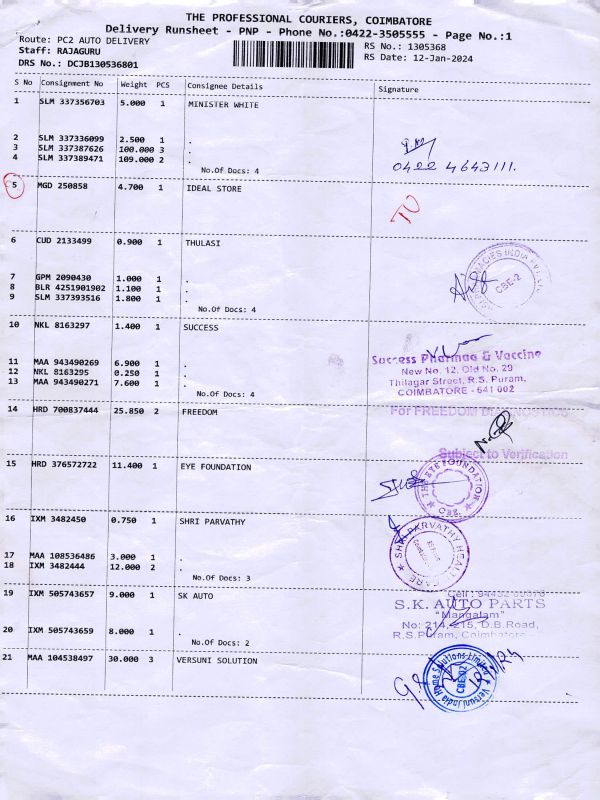 THE PROFESSIONAL COURIERS, COIMBATORE
Delivery Runsheet - PNP - Phone No.:0422-3505555 - Page No.:1
Route: PC2 AUTO DELIVERY RS No.: 1305368
Staff: RAJAGURU RS Date: 12-Jan-2024
DRS No.: DCJB130536801
S No Consignment No Weight PCS Consignee Details Signature
1 SLM 337356703 5.000 1 MINISTER WHITE
2 SLM 337336099 2.500 1 .
3 SLM 337387626 100.000 3 .
4 SLM 337389471 109.000 2 .
No.Of Docs: 4
0422 4643111.
5 MGD 250858 4.700 1 IDEAL STORE
6 CUD 2133499 0.900 1 THULASI
7 GPM 2090430 1.000 1 .
8 BLR 4251901902 1.100 1 .
9 SLM 337393516 1.800 1 .
No.Of Docs: 4
CBE-2
10 NKL 8163297 1.400 1 SUCCESS
11 MAA 943490269 6.900 1 .
12 NKL 8163295 0.250 1 .
13 MAA 943490271 7.600 1 .
No.Of Docs: 4
Success Pharma & Vaccine
New No. 12, Old No. 29
Thilagar Street, R.S. Puram,
COIMBATORE - 641 002
14 HRD 700837444 25.850 2 FREEDOM
For FREEDOM DIAGNOSTICS
Subject to Verification
15 HRD 376572722 11.400 1 EYE FOUNDATION
THE EYE FOUNDATION
Cbe.
16 IXM 3482450 0.750 1 SHRI PARVATHY
17 MAA 108536486 3.000 1 .
18 IXM 3482444 12.000 2 .
No.Of Docs: 3
SHRI PARVATHY HEALTH CARE
19 IXM 505743657 9.000 1 SK AUTO
20 IXM 505743659 8.000 1 .
No.Of Docs: 2
S.K. AUTO PARTS
"Mangalam"
No: 214, 215, D.B.Road,
R.S.Puram, Coimbatore
21 MAA 104538497 30.000 3 VERSUNI SOLUTION
Versuni India Home Solutions Limited
CBE-02